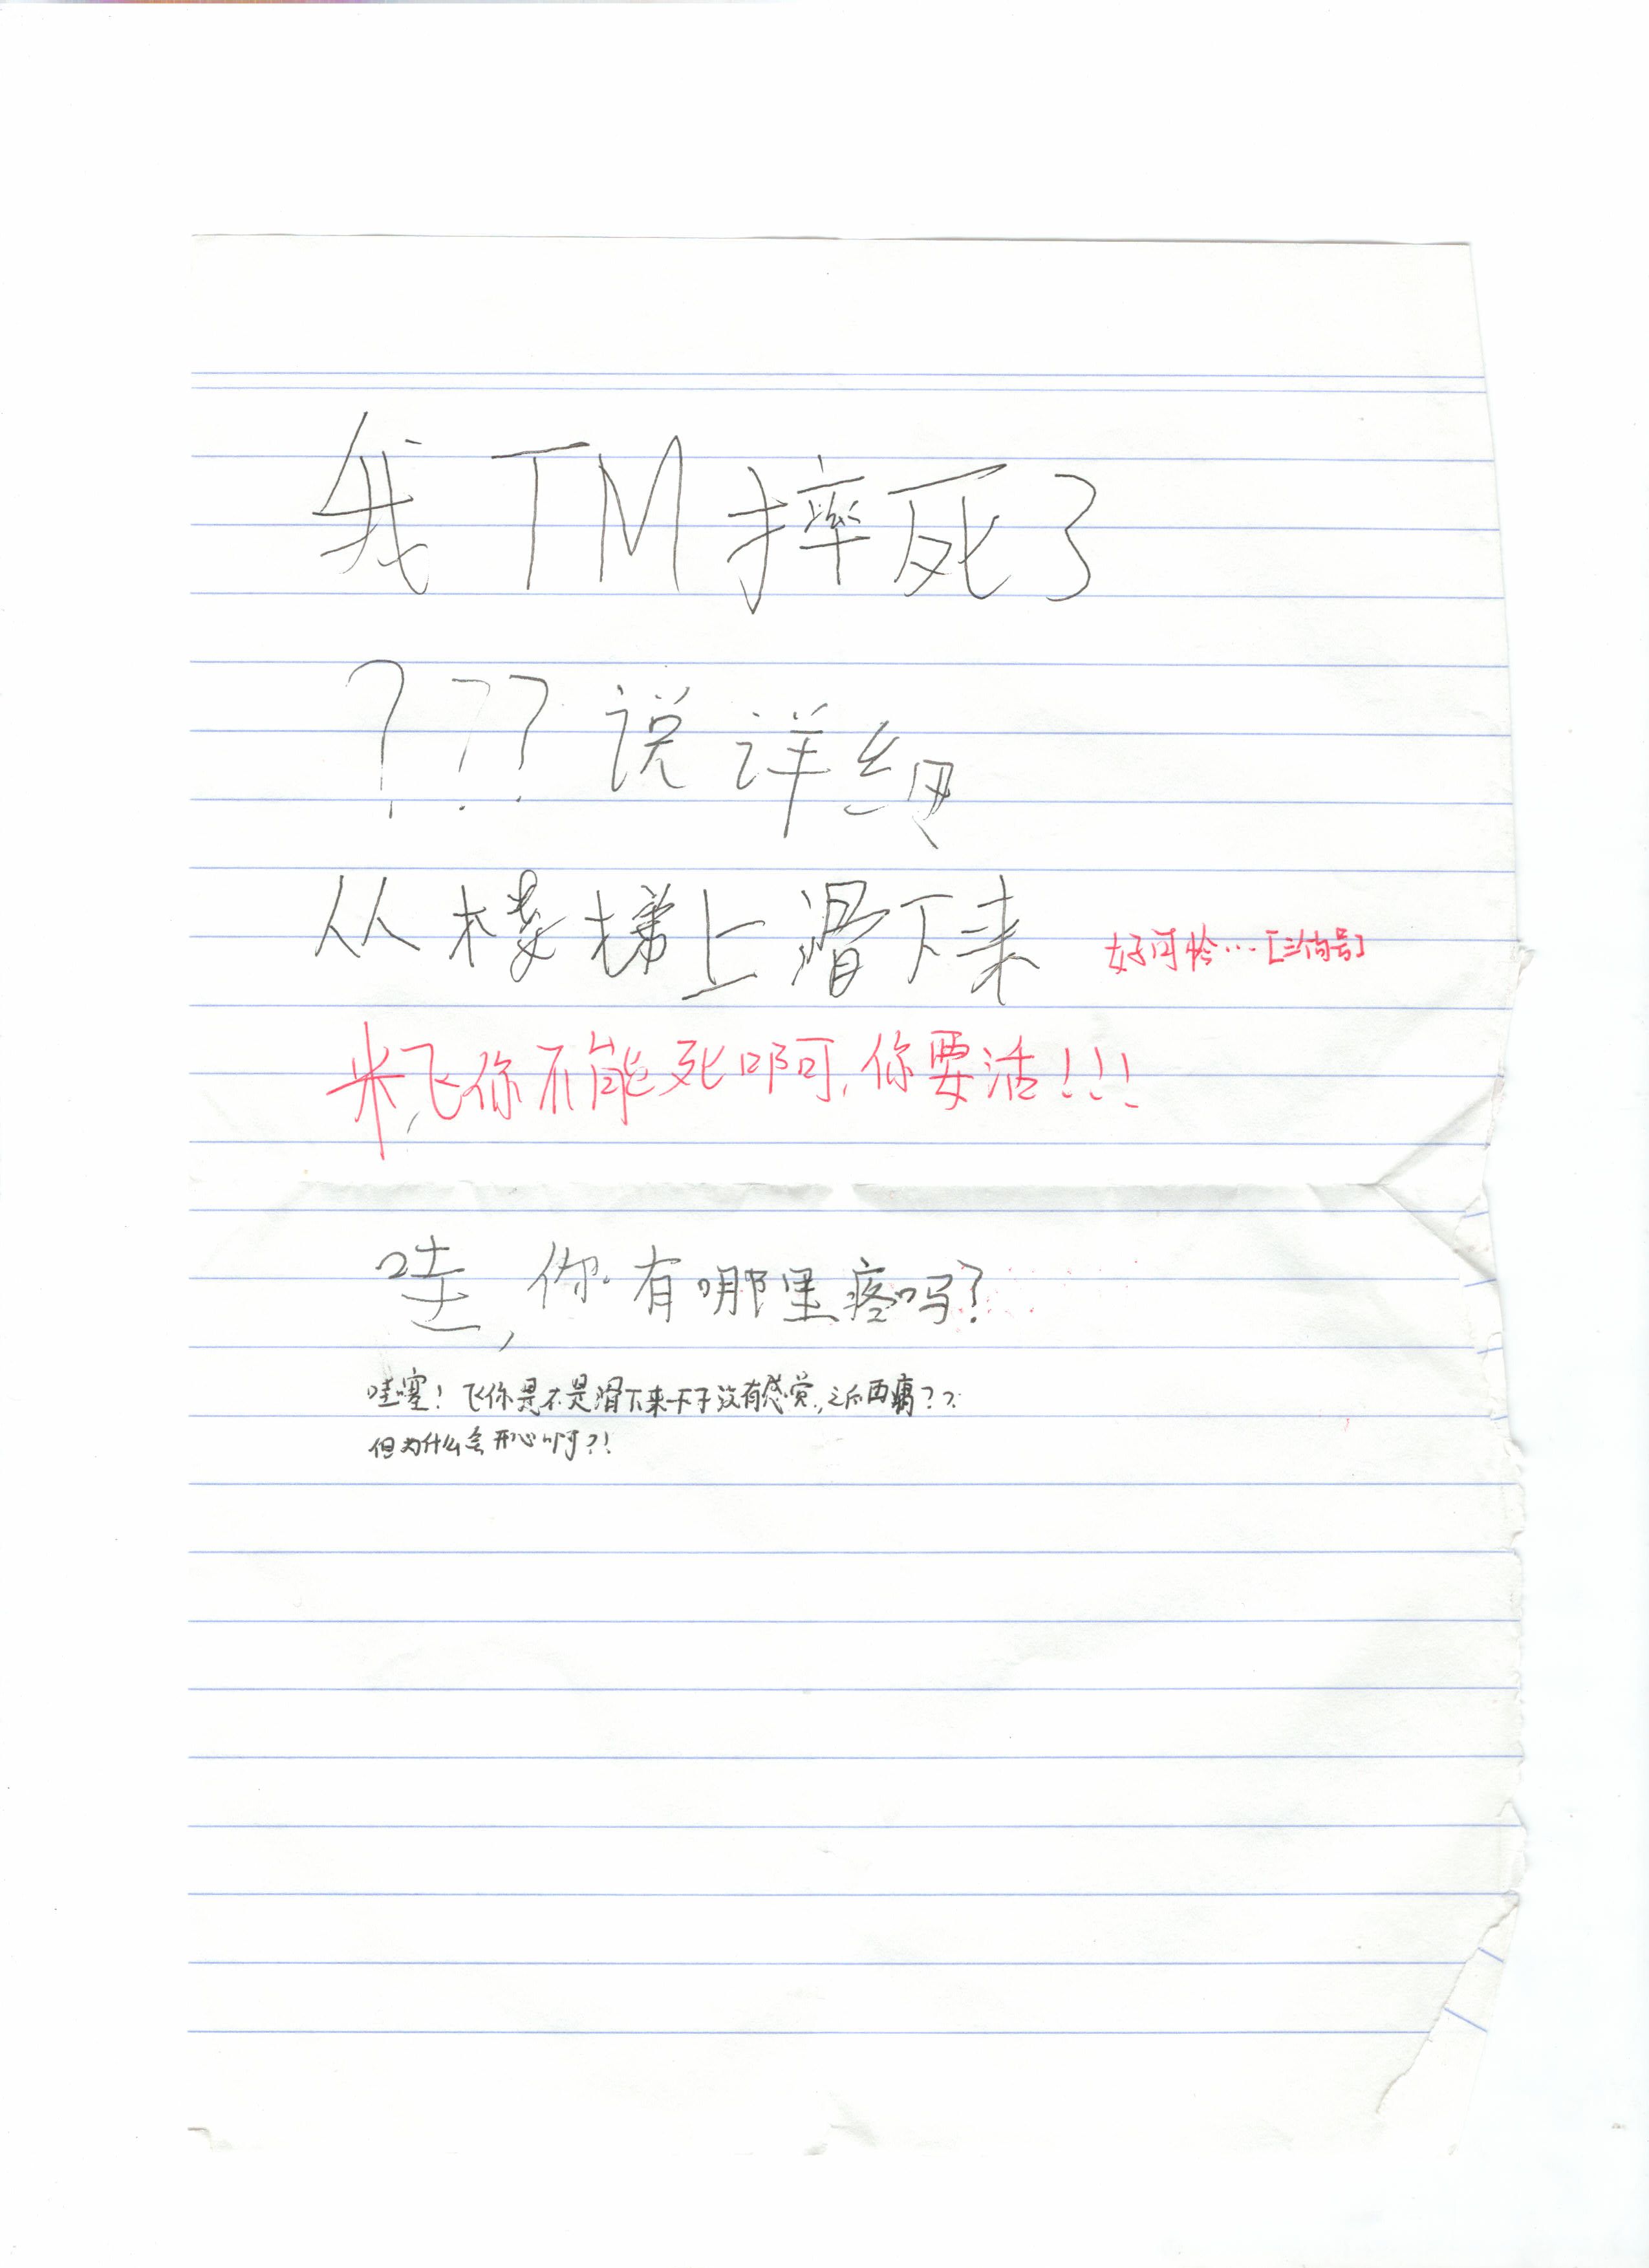 我TM摔死了
???说详细
从楼梯上滑下来
好可怜…[三句号]
米飞你不能死啊,你要活!!!
哇,你有哪里疼吗?
哇塞!飞你是不是滑下来一下子没有感觉,之后再痛??
但为什么会开心啊?!